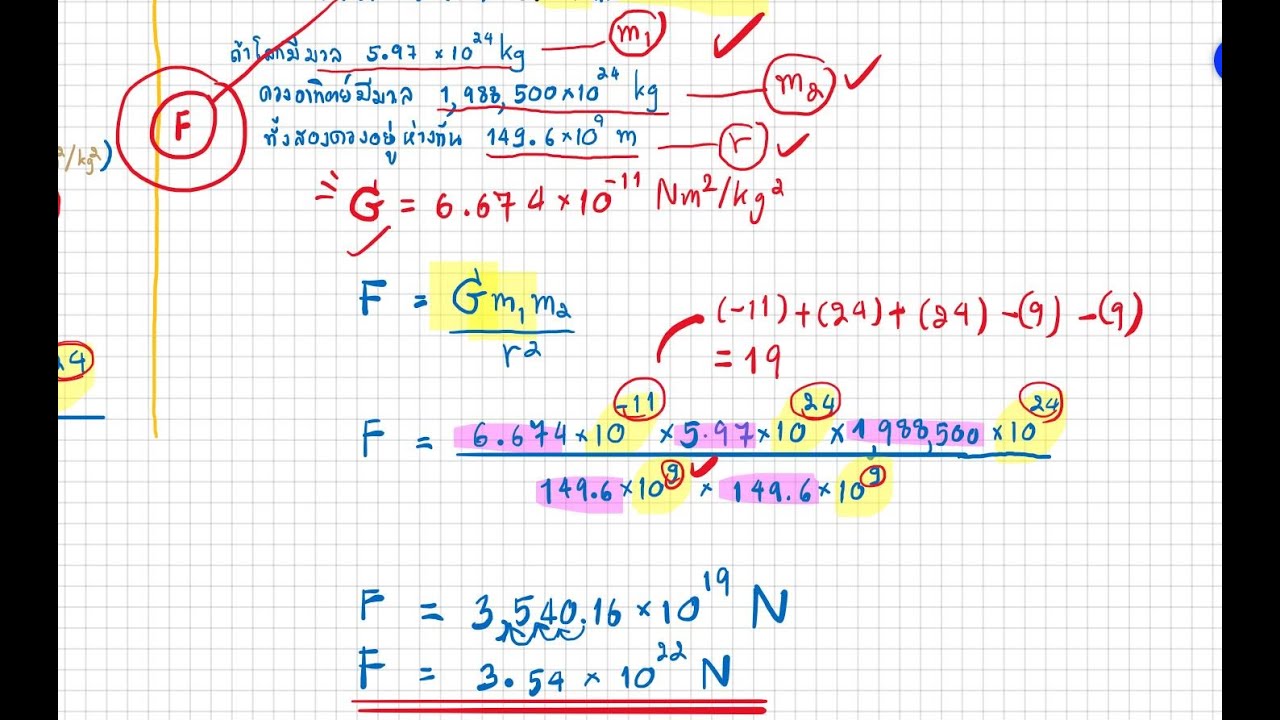 ถ้าโลกมีมวล 5.97 ×10²⁴ kg m₁
ดวงอาทิตย์มีมวล 1,988,500×10²⁴ kg m₂
ทั้งสองดวงอยู่ห่างกัน 149.6×10⁹ m r
F
²/kg²)
G = 6.674×10⁻¹¹ Nm²/kg²
F = Gm₁m₂
r²
(-11)+(24)+(24)-(9)-(9)
= 19
24
F = 6.674×10⁻¹¹ ×5.97×10²⁴ ×1,988,500×10²⁴
149.6×10⁹ × 149.6×10⁹
F = 3,540.16×10¹⁹ N
F = 3.54 × 10²² N